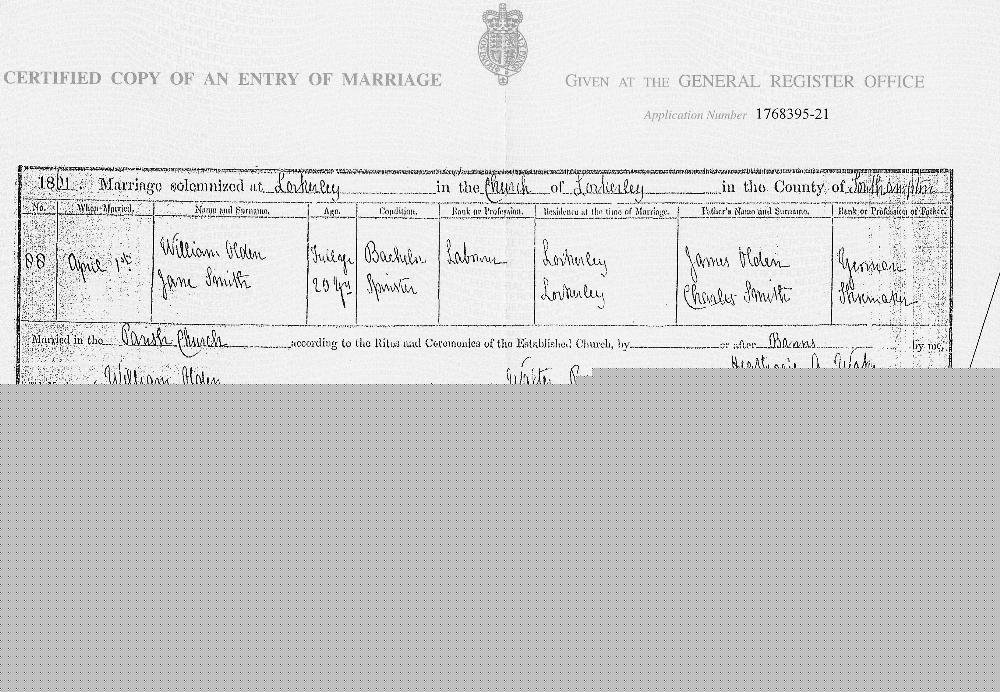 CERTIFIED COPY OF AN ENTRY OF MARRIAGE
GIVEN AT THE GENERAL REGISTER OFFICE
Application Number 1768395-21
1861 Marriage solemnized at Lockerley in the Church of Lockerley in the County of Southampton
No. When Married. Name and Surname. Age. Condition. Rank or Profession. Residence at the time of Marriage. Father's Name and Surname. Rank or Profession of Father.
88 April 1st William Olden Full age Bachelor Labourer Lockerley James Olden Yeoman
Jane Smith 20 yrs Spinster Lockerley Charles Smith Shoemaker
Married in the Parish Church according to the Rites and Ceremonies of the Established Church, by or after Banns by me,
William Olden